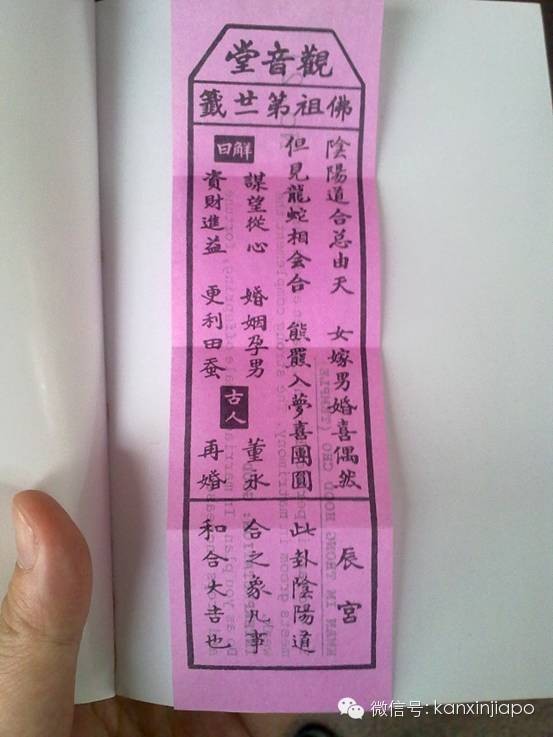 觀音堂
佛祖第廿一籤
陰陽道合总由天 女嫁男婚喜偶然
但見龍蛇相会合 熊羆入夢喜團圓
解曰
謀望從心 婚姻孕男
資財進益 更利田蚕
古人
董永
再婚
辰宮
此卦陰陽道
合之象凡事
和合大吉也
微信号: kanxinjiapo